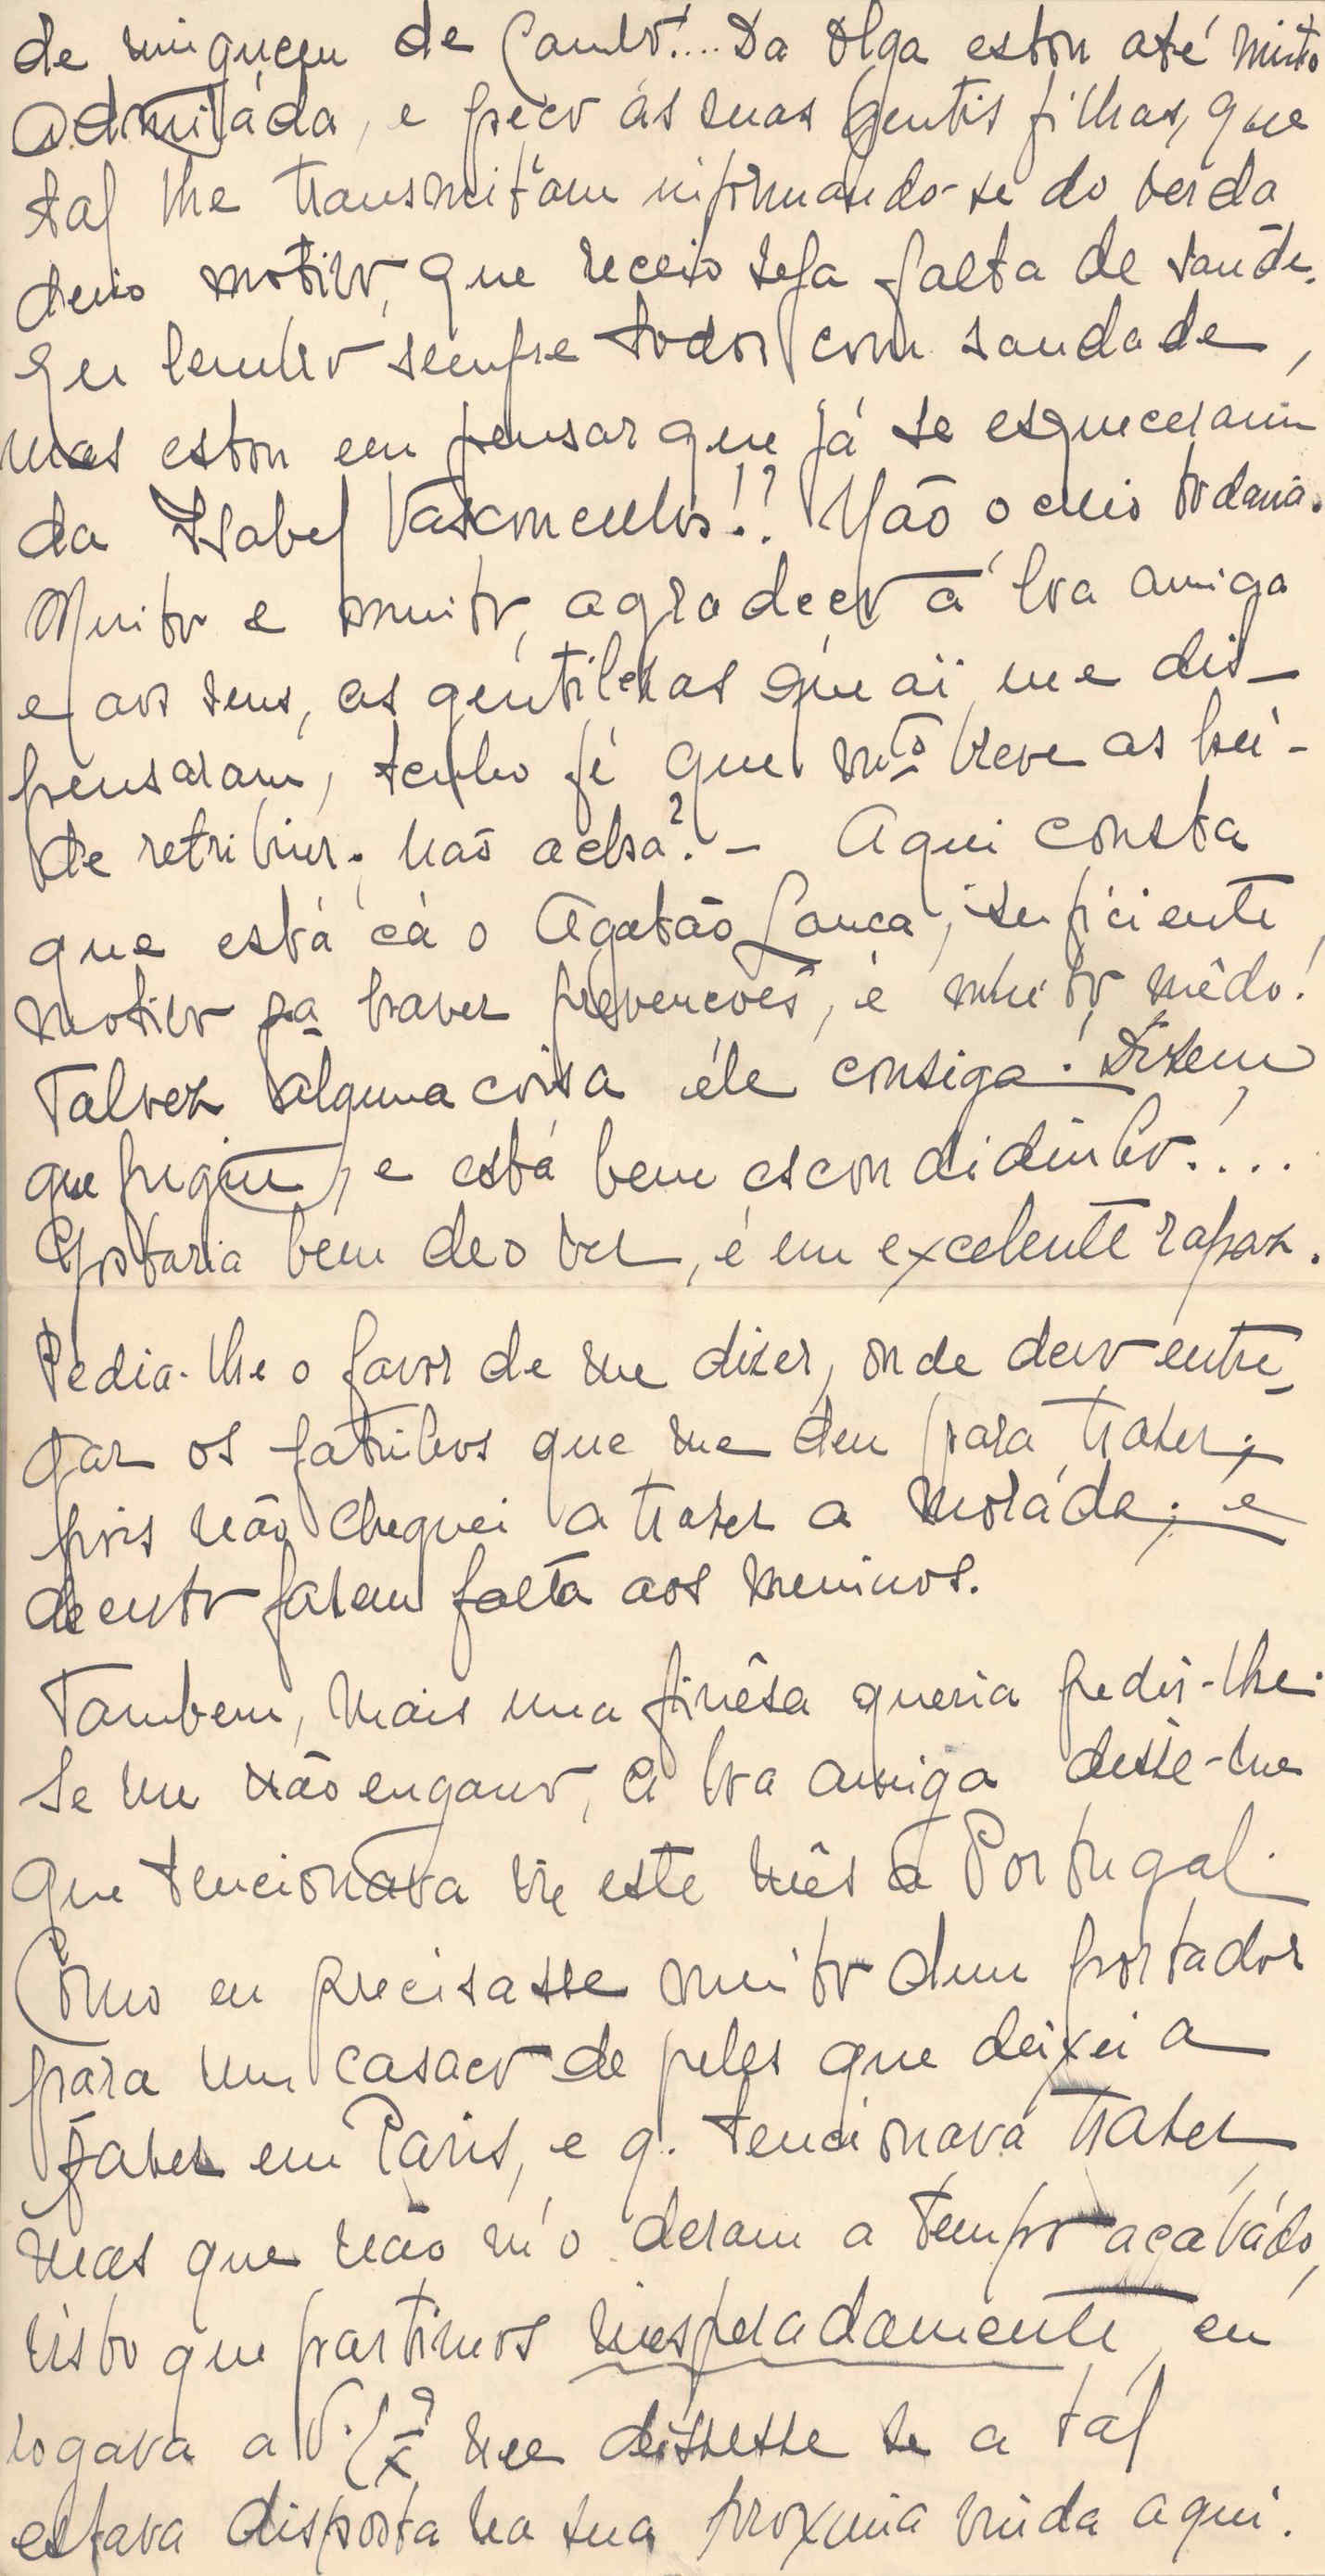 de ninguem de Cambo!... Da Olga estou até muito
admiráda, e peço ás suas gentis filhas, que
tal lhe transmitam informando-se do verda
deiro motivo, que receio seja falta de saúde.
Eu lembro sempre todos com saudade,
mas estou em pensar que já se esqueceram
da Isabel Vasconcellos!? Não o creio todavia.
Muito e muito, agradeço á bôa amiga
e aos seus, as gentilezas que aí me dis-
pensaram, tenho fé que mto breve as hei-
de retribuir. Não acha? - Aqui consta
que está cá o Agatão Lança, suficiente
motivo pa haver prevenções, e muito mêdo!
Talvez alguma coisa êle consiga! Dizem
que fugiu, e está bem escondidinho!...
Gostaria bem de o ver, é um excelente rapaz.
Pedia-lhe o favor de me dizer, onde devo entre-
gar os fatinhos que me deu para trazer;
pois não cheguei a trazer a moráda; e
decerto fazem falta aos meninos.
Tambem, mais uma finêsa queria pedir-lhe.
Se me não engano, a bôa amiga disse-me
que tencionava vir este mês a Portugal.
Como eu precisasse muito dum portador
para um casaco de peles que deixei a
fazer em Paris, e q. tencionava trazer
mas que não m'o deram a tempo acabádo,
visto que partimos inesperadamente, eu
rogava a V. Exª me dissesse se a tal
estava disposta na sua proxima vinda aqui.